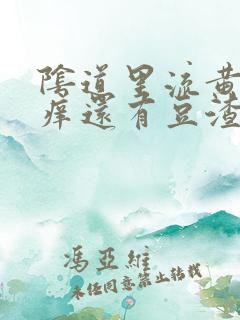 陰道里流黃
癢還有豆渣
馮亞維
未经同意禁止转载